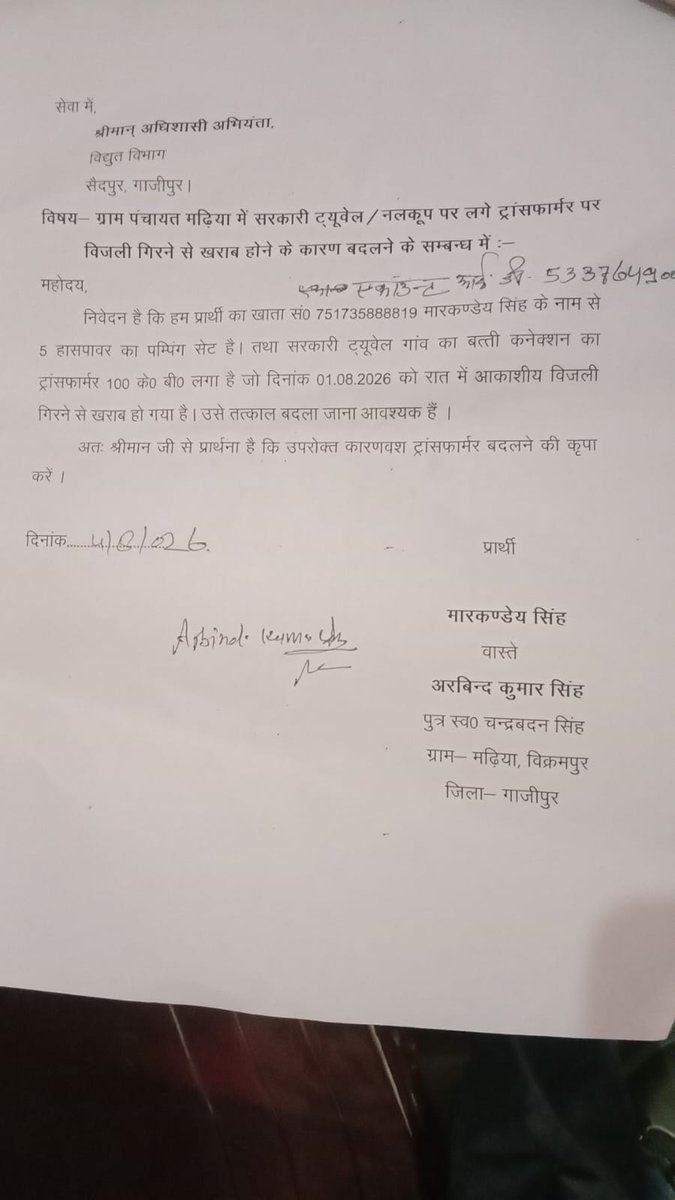 सेवा में,
श्रीमान् अधिशासी अभियंता,
विद्युत विभाग
सैदपुर, गाजीपुर।
विषय– ग्राम पंचायत मढ़िया में सरकारी ट्यूवेल/नलकूप पर लगे ट्रांसफार्मर पर
विजली गिरने से खराब होने के कारण बदलने के सम्बन्ध में :–
एकाउन्ट आई. डी. 533764900
महोदय,
निवेदन है कि हम प्रार्थी का खाता सं0 751735888819 मारकण्डेय सिंह के नाम से
5 हासपावर का पम्पिंग सेट है। तथा सरकारी ट्यूवेल गांव का बत्ती कनेक्शन का
ट्रांसफार्मर 100 के0 बी0 लगा है जो दिनांक 01.08.2026 को रात में आकाशीय विजली
गिरने से खराब हो गया है। उसे तत्काल बदला जाना आवश्यक हैं ।
अतः श्रीमान जी से प्रार्थना है कि उपरोक्त कारणवश ट्रांसफार्मर बदलने की कृपा
करें ।
दिनांक.......4/8/026.
प्रार्थी
मारकण्डेय सिंह
Arbind Kumar
वास्ते
अरबिन्द कुमार सिंह
पुत्र स्व0 चन्द्रबदन सिंह
ग्राम– मढ़िया, विक्रमपुर
जिला– गाजीपुर